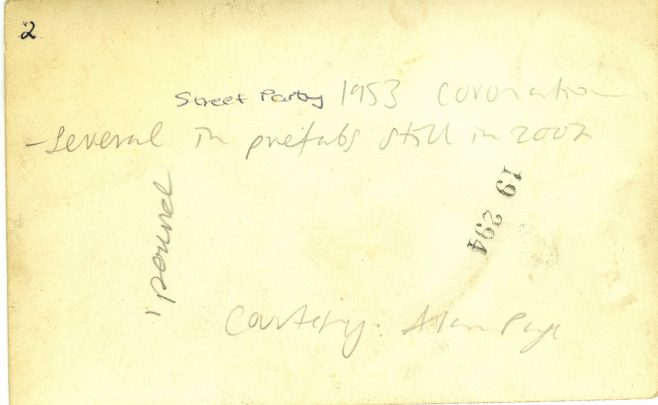 2
Street Party 1953 Coronation
- several in prefabs still in 2002
pound
19 294
Courtesy. Alan Page